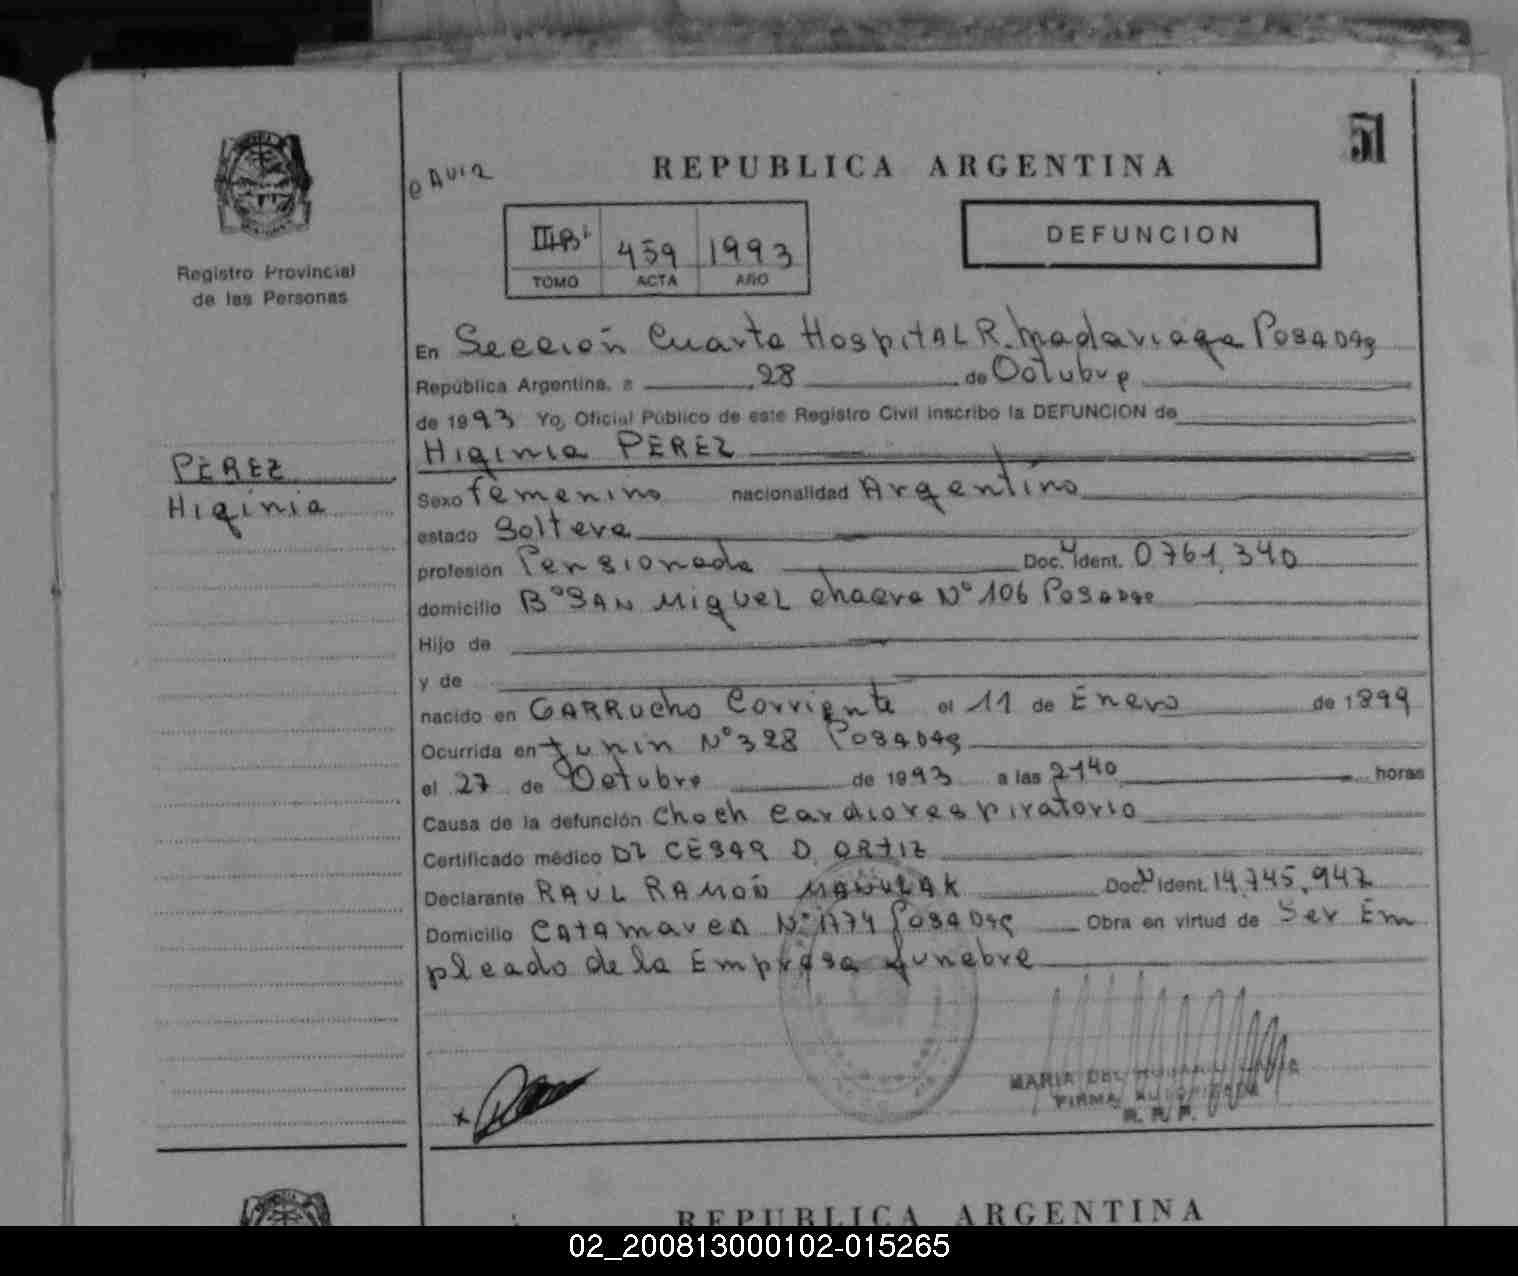 51
REPUBLICA ARGENTINA
DEFUNCION
459 1993
TOMO ACTA AÑO
Registro Provincial
de las Personas
PEREZ
Higinia
En Sección Cuarta Hospital R. Madariaga Posadas
República Argentina, a 28 de Octubre
de 1993 Yo, Oficial Público de este Registro Civil inscribo la DEFUNCION de
Higinia PEREZ
Sexo femenino nacionalidad Argentino
estado Soltera
profesión Pensionada Doc. Ident. 0761.340
domicilio B° SAN MIGUEL chacra N° 106 Posadas
Hijo de
y de
nacido en GARRUCHO Corriente el 11 de Enero de 1899
Ocurrida en Junin N° 328 Posadas
el 27 de Octubre de 1993 a las 2140 horas
Causa de la defunción Choch cardiorespiratorio
Certificado médico DR CESAR D. ORTIZ
Declarante RAUL RAMON MANULAK Doc. Ident. 14.745.942
Domicilio Catamarca N° 1174 Posadas Obra en virtud de Ser Em
pleado de la Empresa funebre
MARIA DEL
FIRMA AUTORIZADA
R. P. P.
REPUBLICA ARGENTINA
02_200813000102-015265